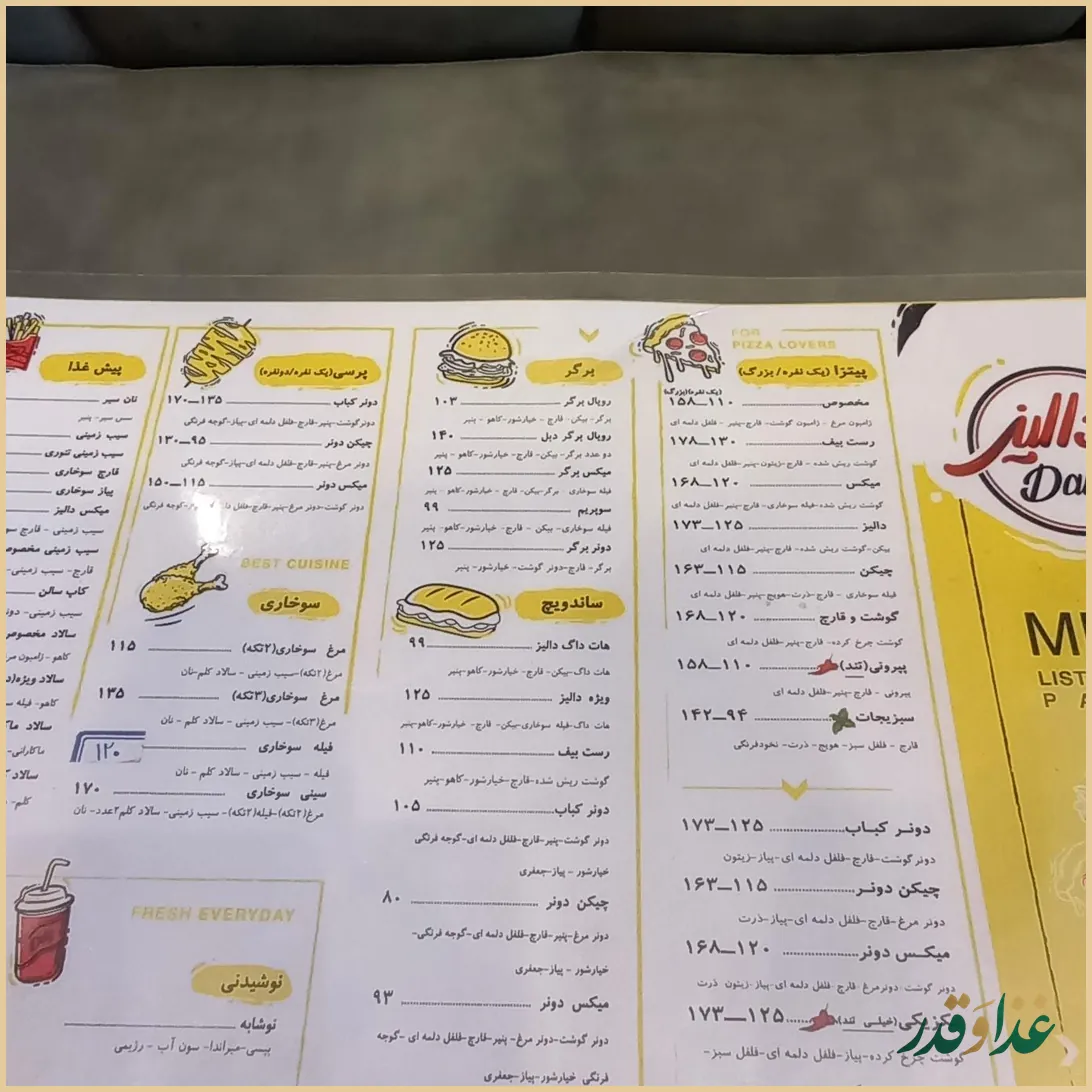 دالیز
FOR
PIZZA LOVERS
پیتزا (یک نفره/ بزرگ)
(یک نفره)(بزرگ)
مخصوص ۱۱۰_۱۵۸
ژامبون مرغ - ژامبون گوشت- قارچ-پنیر - فلفل دلمه ای
رست بیف ۱۳۰_۱۷۸
گوشت ریش شده - قارچ-زیتون-پنیر-فلفل دلمه ای
میکس ۱۲۰_۱۶۸
گوشت ریش شده-فیله سوخاری-قارچ-پنیر-فلفل دلمه ای
دالیز ۱۲۵_۱۷۳
بیکن-گوشت ریش شده-قارچ-پنیر-فلفل دلمه ای
چیکن ۱۱۵_۱۶۳
فیله سوخاری - قارچ-ذرت-هویج-پنیر-فلفل دلمه ای
گوشت و قارچ ۱۲۰_۱۶۸
گوشت چرخ کرده- قارچ-پنیر-فلفل دلمه ای
پپرونی (تند) ۱۱۰_۱۵۸
پپرونی - قارچ-پنیر-فلفل دلمه ای
سبزیجات ۹۴_۱۴۲
قارچ - فلفل سبز- هویج - ذرت- نخودفرنگی
دونر کباب ۱۲۵_۱۷۳
دونر گوشت-قارچ-فلفل دلمه ای-پیاز-زیتون
چیکن دونر ۱۱۵_۱۶۳
دونر مرغ-قارچ-فلفل دلمه ای-پیاز-ذرت
میکس دونر ۱۲۰_۱۶۸
دونر گوشت-دونرمرغ-قارچ-فلفل دلمه ای-پیاز-زیتون ذرت
(خیلی تند) ۱۲۵_۱۷۳
گوشت چرخ کرده-پیاز-فلفل دلمه ای-فلفل سبز-
برگر
رویال برگر ۱۰۳
برگر- بیکن -قارچ - خیارشور-کاهو - پنیر
رویال برگر دبل ۱۴۰
دو عدد برگر-بیکن -قارچ-خیارشور-کاهو- پنیر
میکس برگر ۱۲۵
فیله سوخاری - برگر-بیکن- قارچ - خیارشور-کاهو - پنیر
سوپریم ۹۹
فیله سوخاری- بیکن - قارچ- خیارشور-کاهو- پنیر
دونر برگر ۱۲۵
برگر- قارچ-دونر گوشت- خیارشور- پنیر
ساندویچ
هات داگ دالیز ۹۹
هات داگ-بیکن- قارچ- خیارشور-کاهو-پنیر
ویژه دالیز ۱۲۵
هات داگ-فیله سوخاری-بیکن- قارچ- خیارشور-کاهو-پنیر
رست بیف ۱۱۰
گوشت ریش شده-قارچ-خیارشور-کاهو-پنیر
دونر کباب ۱۰۵
دونر گوشت-پنیر-قارچ-فلفل دلمه ای-گوجه فرنگی
خیارشور - پیاز-جعفری
چیکن دونر ۸۰
دونر مرغ-پنیر-قارچ-فلفل دلمه ای-گوجه فرنگی-
خیارشور - پیاز-جعفری
میکس دونر ۹۳
دونر گوشت-دونر مرغ- پنیر-قارچ-فلفل دلمه ای -گوجه
فرنگی خیارشور-پیاز-جعفری
پرسی(یک نفره/دونفره)
دونر کباب ۱۳۵_۱۷۰
دونرگوشت-پنیر-قارچ-فلفل دلمه ای-پیاز-گوجه فرنگی
چیکن دونر ۹۵_۱۳۰
دونر مرغ-پنیر-قارچ-فلفل دلمه ای-پیاز-گوجه فرنگی
میکس دونر ۱۱۵_۱۵۰
دونر گوشت-دونر مرغ-پنیر-قارچ-فلفل دلمه ای-پیاز-گوجه فرنگی
BEST CUISINE
سوخاری
مرغ سوخاری(۲تکه) ۱۱۵
مرغ(۲تکه)-سیب زمینی - سالاد کلم-نان
مرغ سوخاری(۳تکه) ۱۳۵
مرغ(۳تکه)- سیب زمینی - سالاد کلم - نان
فیله سوخاری ۱۲۰
فیله - سیب زمینی - سالاد کلم - نان
سینی سوخاری ۱۷۰
مرغ(۲تکه)-فیله(۲تکه)- سیب زمینی- سالاد کلم۲عدد-نان
پیش غذا
نان سیر
سس سیر- پنیر
سیب زمینی
سیب زمینی تنوری
قارچ سوخاری
پیاز سوخاری
میکس دالیز
سیب زمینی - قارچ
سیب زمینی مخصوص
قارچ- سیب زمینی-
کاپ سالن
سیب زمینی-
سالاد مخصوص
کاهو - ژامبون
سالاد ویژه
کاهو- فیله
سالاد
ماکارانی-
سالاد
کلم-
FRESH EVERYDAY
نوشیدنی
نوشابه
پپسی-میراندا- سون آپ - رژیمی
غذا و قدر